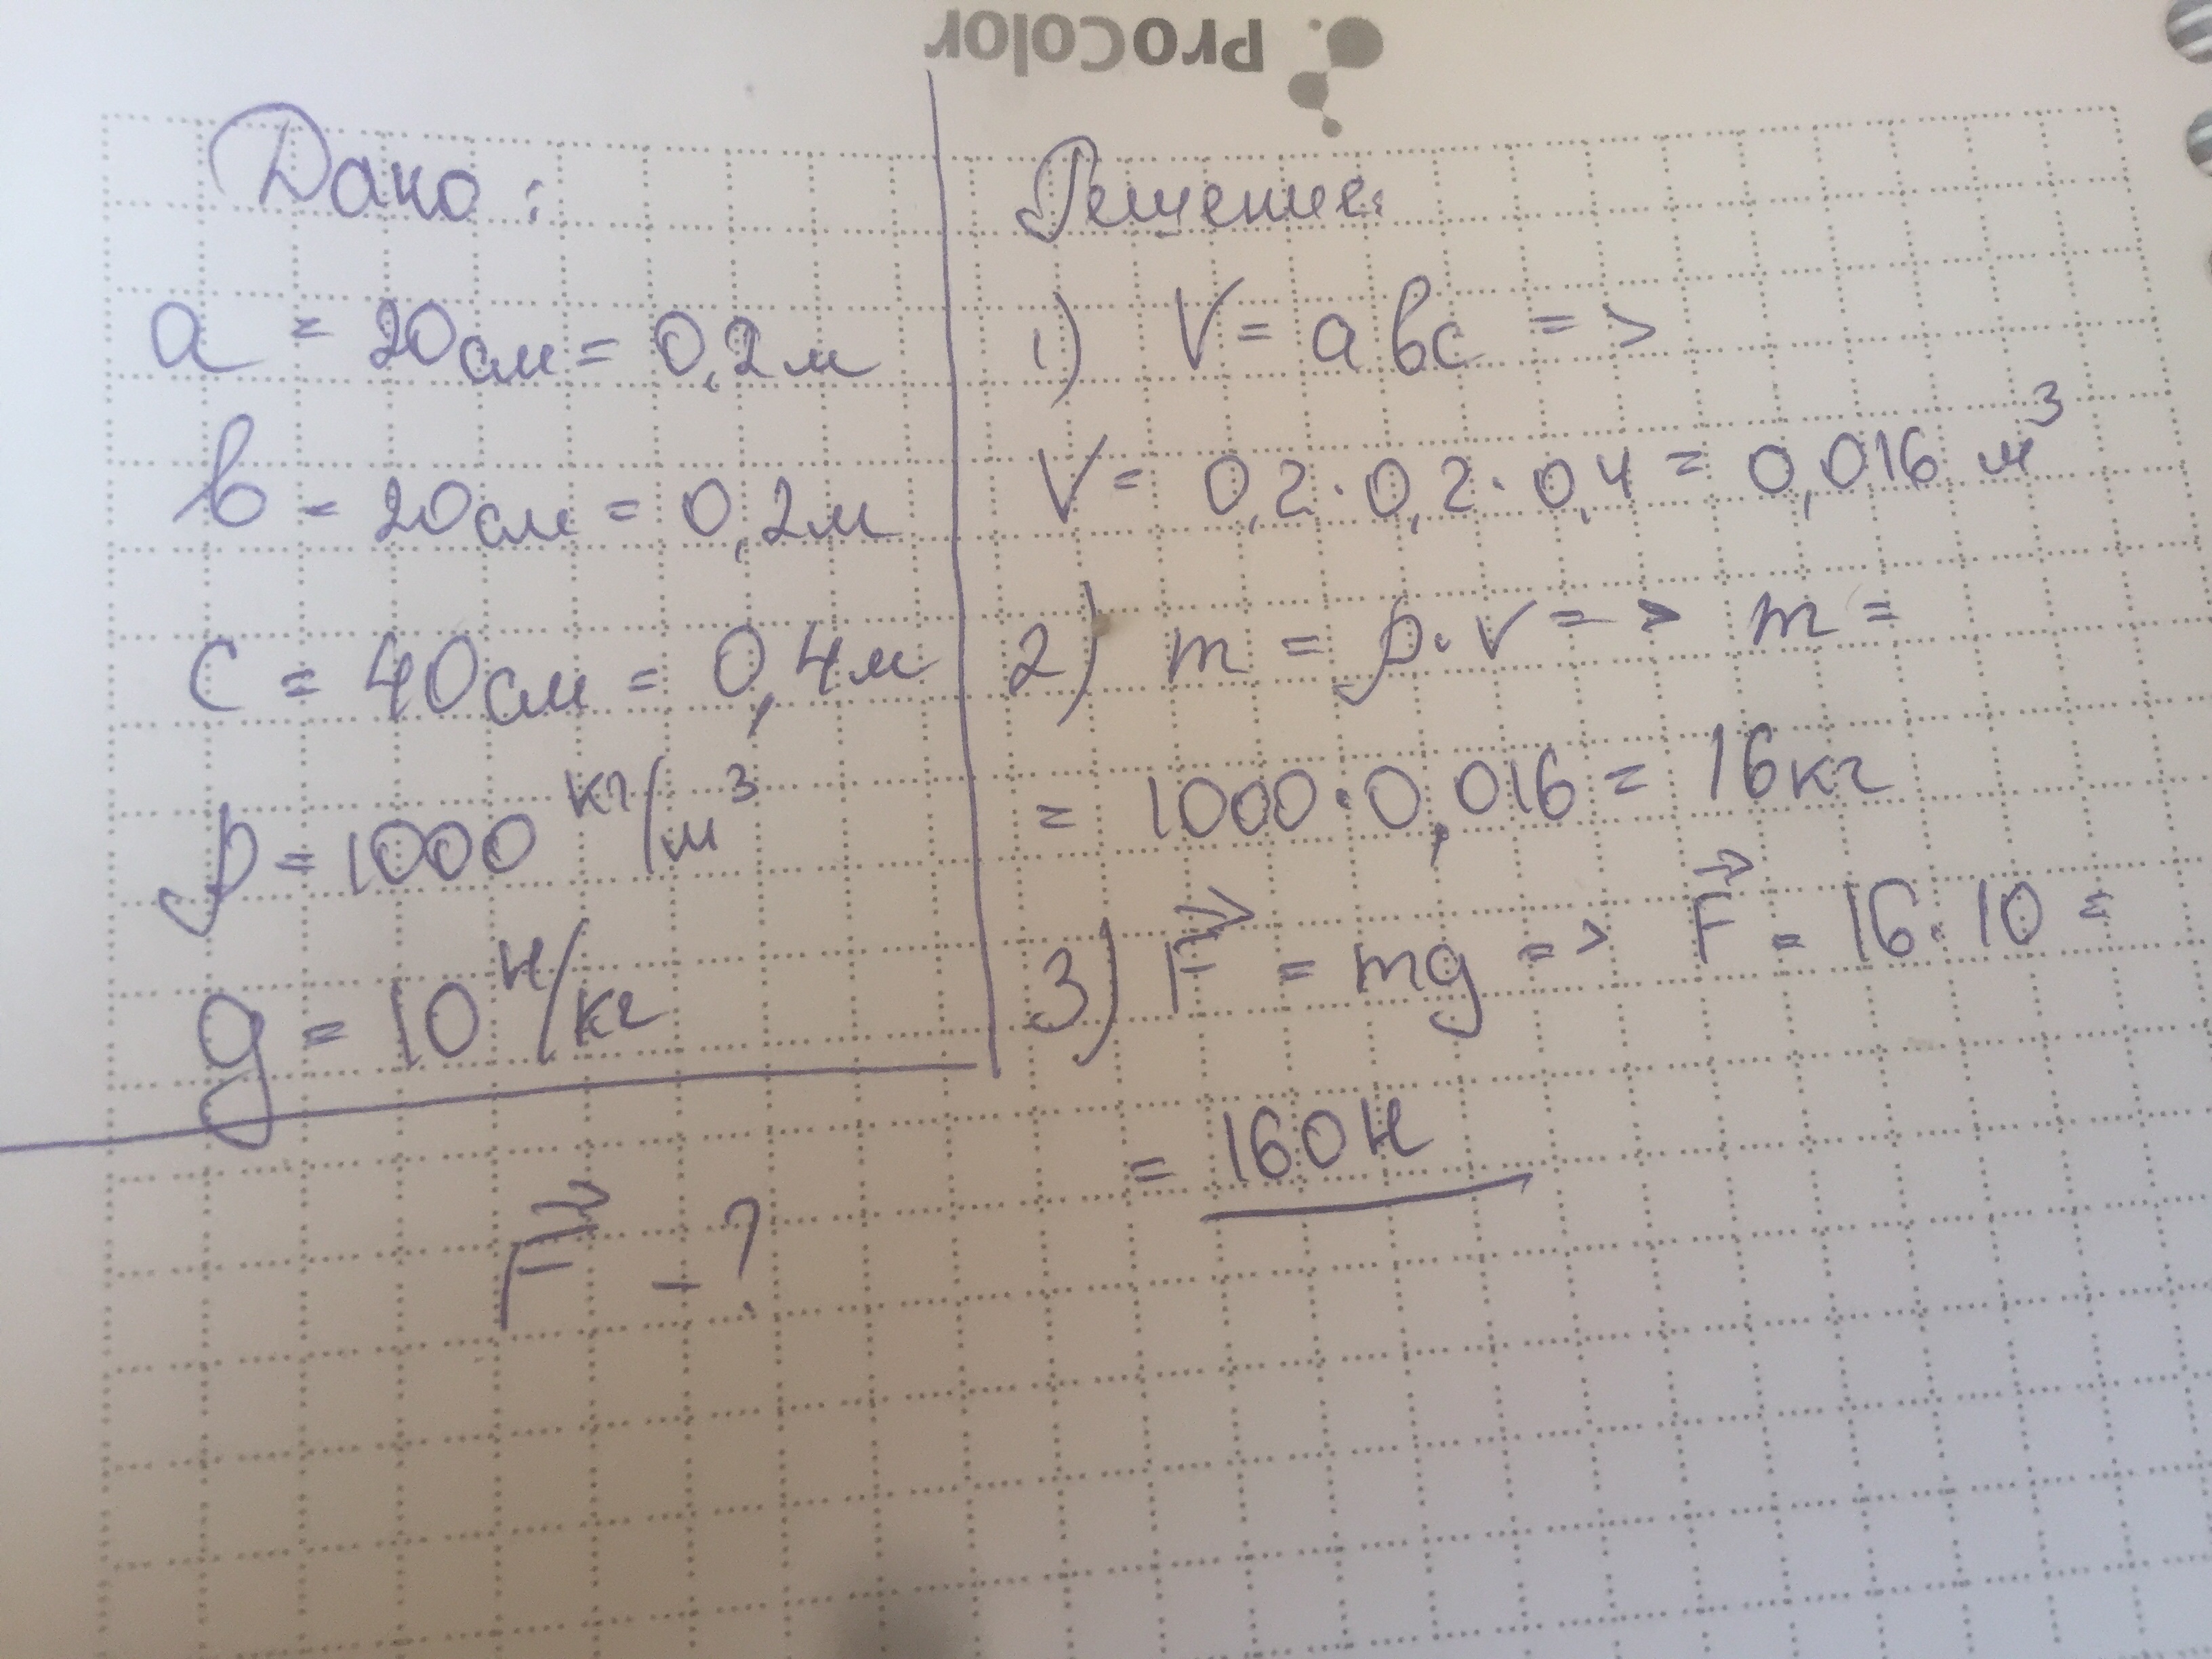 ProColor
Дано:
a = 20см = 0,2м
b = 20см = 0,2м
c = 40см = 0,4м
ρ = 1000 кг/м³
g = 10 Н/кг
F⃗ - ?
Решение:
1) V = abc =>
V = 0,2·0,2·0,4 = 0,016 м³
2) m = ρ·V => m =
= 1000·0,016 = 16кг
3) F⃗ = mg => F⃗ = 16·10 =
= 160Н